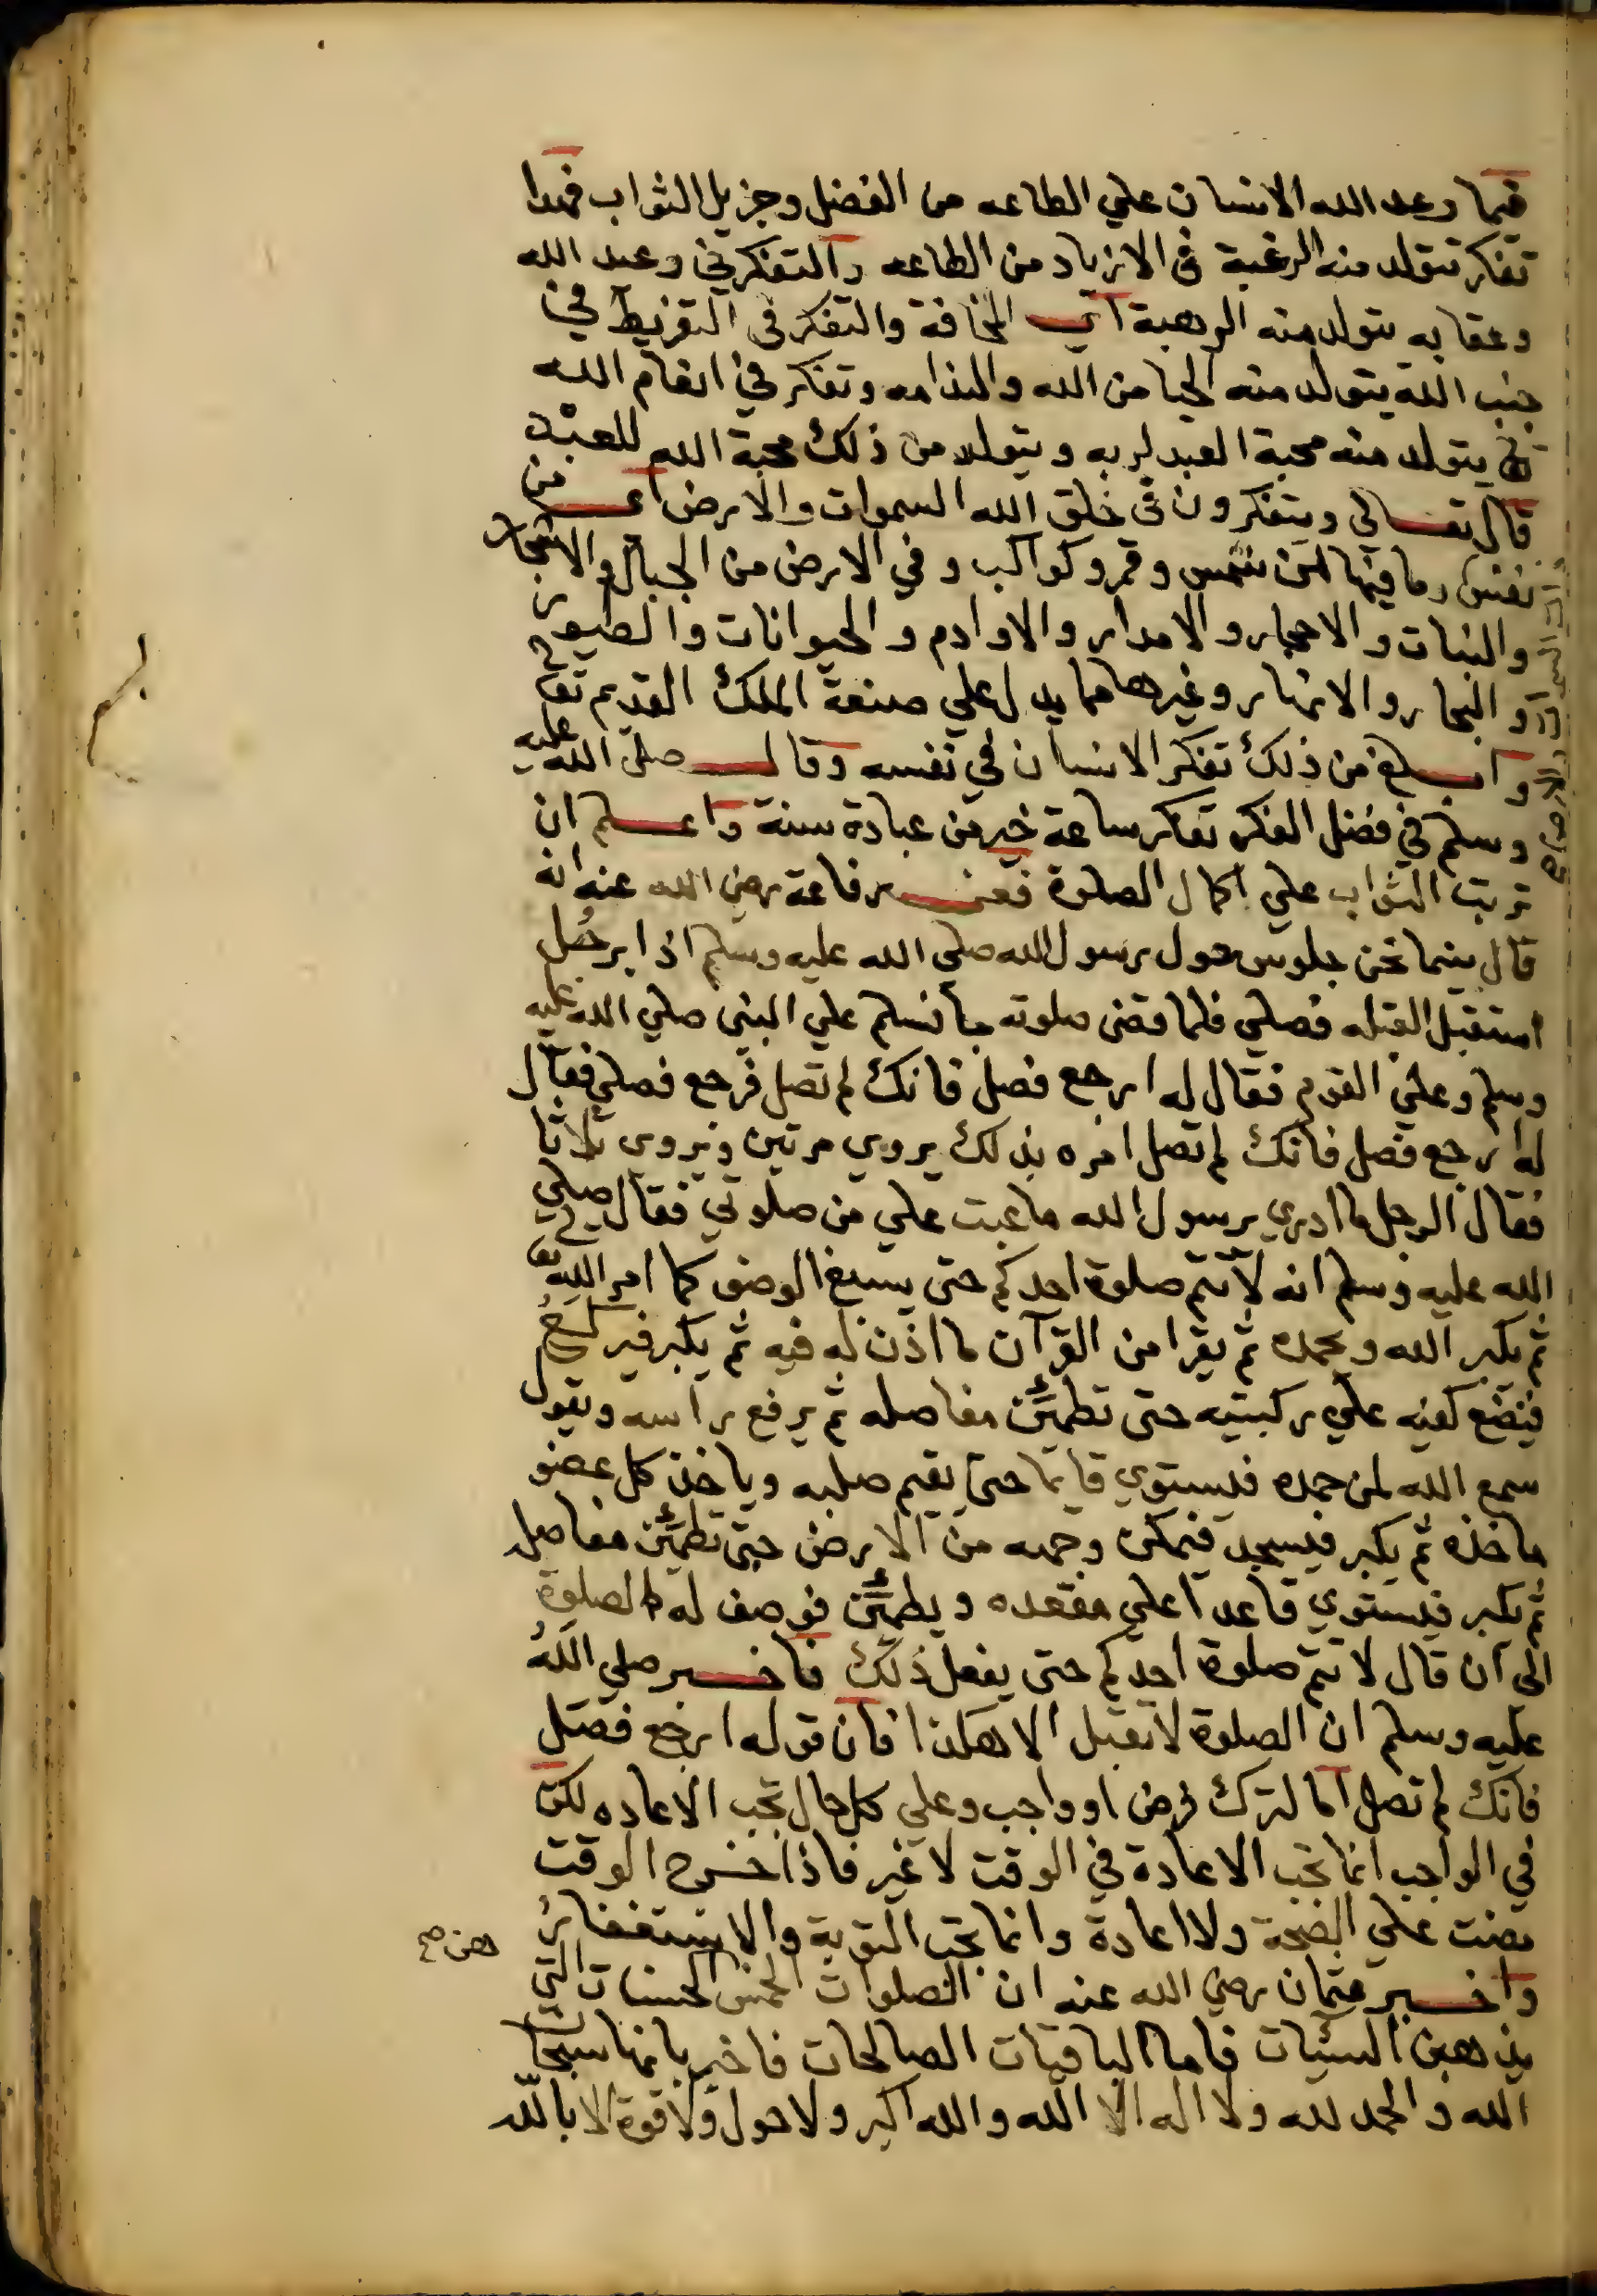 فيما وعد الله الانسان علي الطاعه من الفضل وجزيل الثواب فهذا
تفكر تتولد منه الرغبة في الازياد من الطاعه والتفكر في وعيد الله
وعقابه يتولد منه الرهبة اي المخافة والتفكر في التفريط في
جنب الله يتولد منه الحيا من الله والندامه وتفكر في انعام الله
يتولد منه محبة العبد لربه ويتولد من ذلك محبة الله للعبد
قال تعالي ويتفكرون في خلق الله السموات والارض اي من
نفس وما فيها من شمس وقمر وكواكب وفي الارض من الجبال والاشجار
والنبات والاحجار والامدار والاوادم والحيوانات والطيور
والبحار والانهار وغيرها مما يدل علي صنعة الملك القديم تعا
وابلغ من ذلك تفكر الانسان في نفسه وقال صلي الله عليه
وسلم في فضل الفكر تفكر ساعة خير من عبادة سنة واعلم ان
ترتب الثواب علي اكمال الصلوة فعن رفاعة رضي الله عنه انه
قال بينما نحن جلوس حول رسول الله صلي الله عليه وسلم اذا برجُل
استقبل القبله فصلي فلما قضي صلوته جا فسلم علي النبي صلي الله عليه
وسلم وعلي القوم فقال له ارجع فصل فانك لم تصل فرجع فصلي فقال
له ارجع فصل فانك لم تصل امره بذلك يروي مرتين ويروي ثلاثا
فقال الرجل ما ادري يرسول الله ما عبت علي من صلوتي فقال صلي
الله عليه وسلم انه لا تتم صلوة احدكم حتي يسبغ الوضو كما امر الله تعا
ثم يكبر الله ويحمده ثم يقرا من القرآن ما اذن له فيه ثم يكبر فيركعُ
فيضع كفيه علي ركبتيه حتي تطمئن مفاصله ثم يرفع راسه ويقول
سمع الله لمن حمده فيستوي قايما حتي يقيم صلبه وياخذ كل عضو
ماخذه ثم يكبر فيسجد فيمكن وجهه من الارض حتي تطمئن مفاصله
ثم يكبر فيستوي قاعدا علي مقعده ويطمئن فوصف له الصلوة
الي ان قال لا تتم صلوة احدكم حتي يفعل ذلك فاخبر صلي اللهُ
عليه وسلم ان الصلوة لا تقبل الا هكذا فان قوله ارجع فصل
فانك لم تصل اما لترك فرض او واجب وعلي كل حال تجب الاعاده لكن
في الواجب انما تجب الاعادة في الوقت لا غير فاذا خرج الوقت
مضت علي الصحة ولا اعادة وانما تجب التوبة والاستغفار
واخبر عثمان رضي الله عنه ان الصلوات الخمس الحسنات التي
هن صح
يذهبن السيئات فاما الباقيات الصالحات فاخبر بانها سبحا
الله والحمد لله ولا اله الا الله والله اكبر ولا حول ولا قوة الا بالله